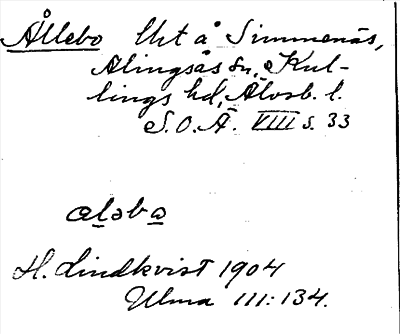 Ållebo Uht å Simmenäs,
Alingsås sn, Kul-
lings hd, Älvsb. l.
S.O.Ä. VIII s. 33
aləba
H. Lindkvist 1904
Ulma III:134.